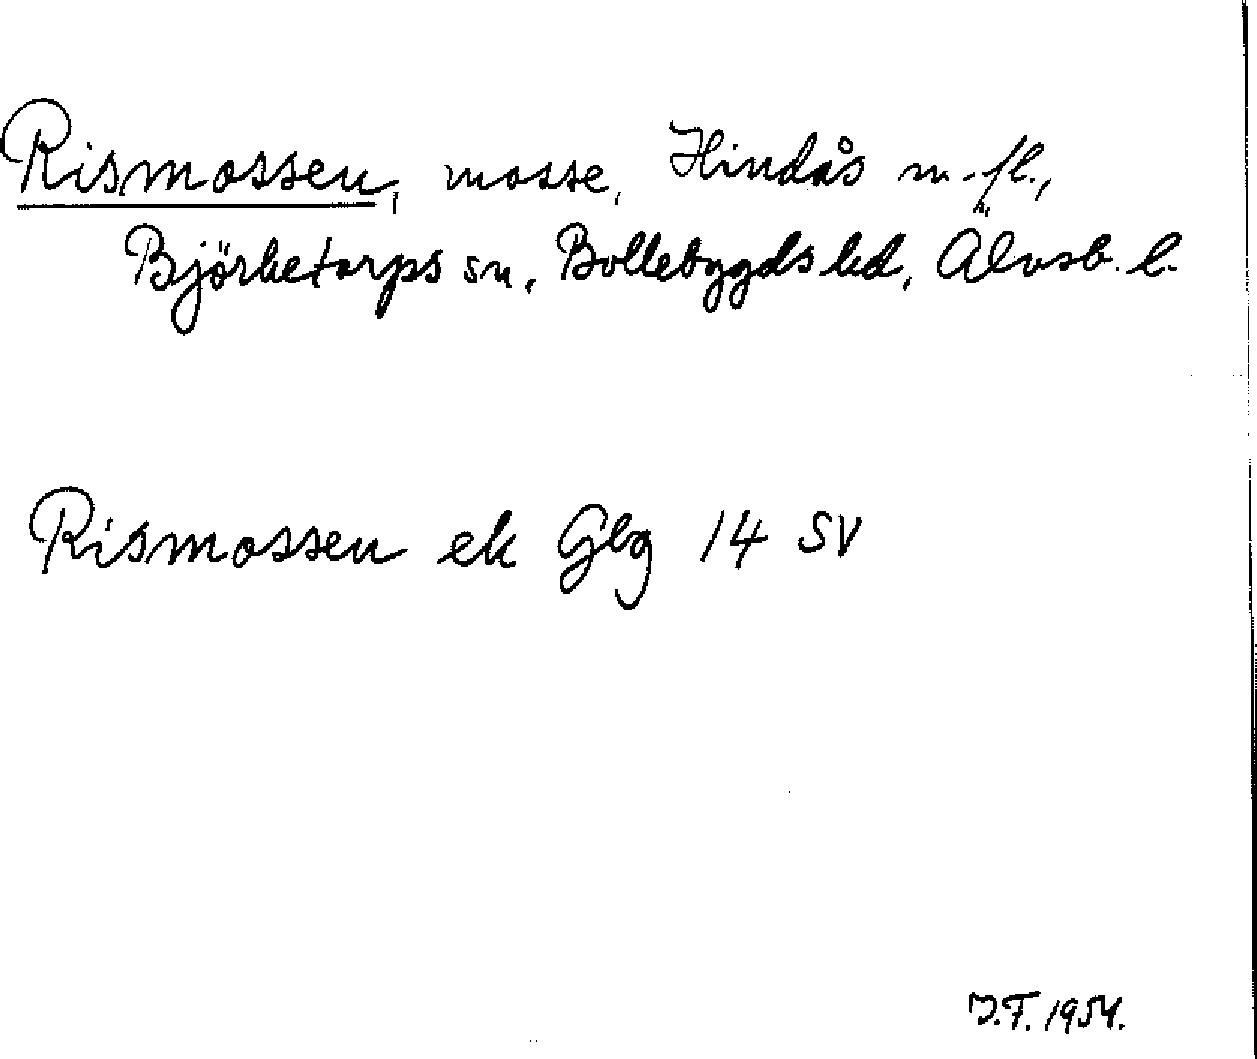 Rismossen, mosse, Hindås m.fl.,
Björketorps sn, Bollebygds hd, Älvsb. l.
Rismossen ek Gbg 14 SV
J.F. 1954.